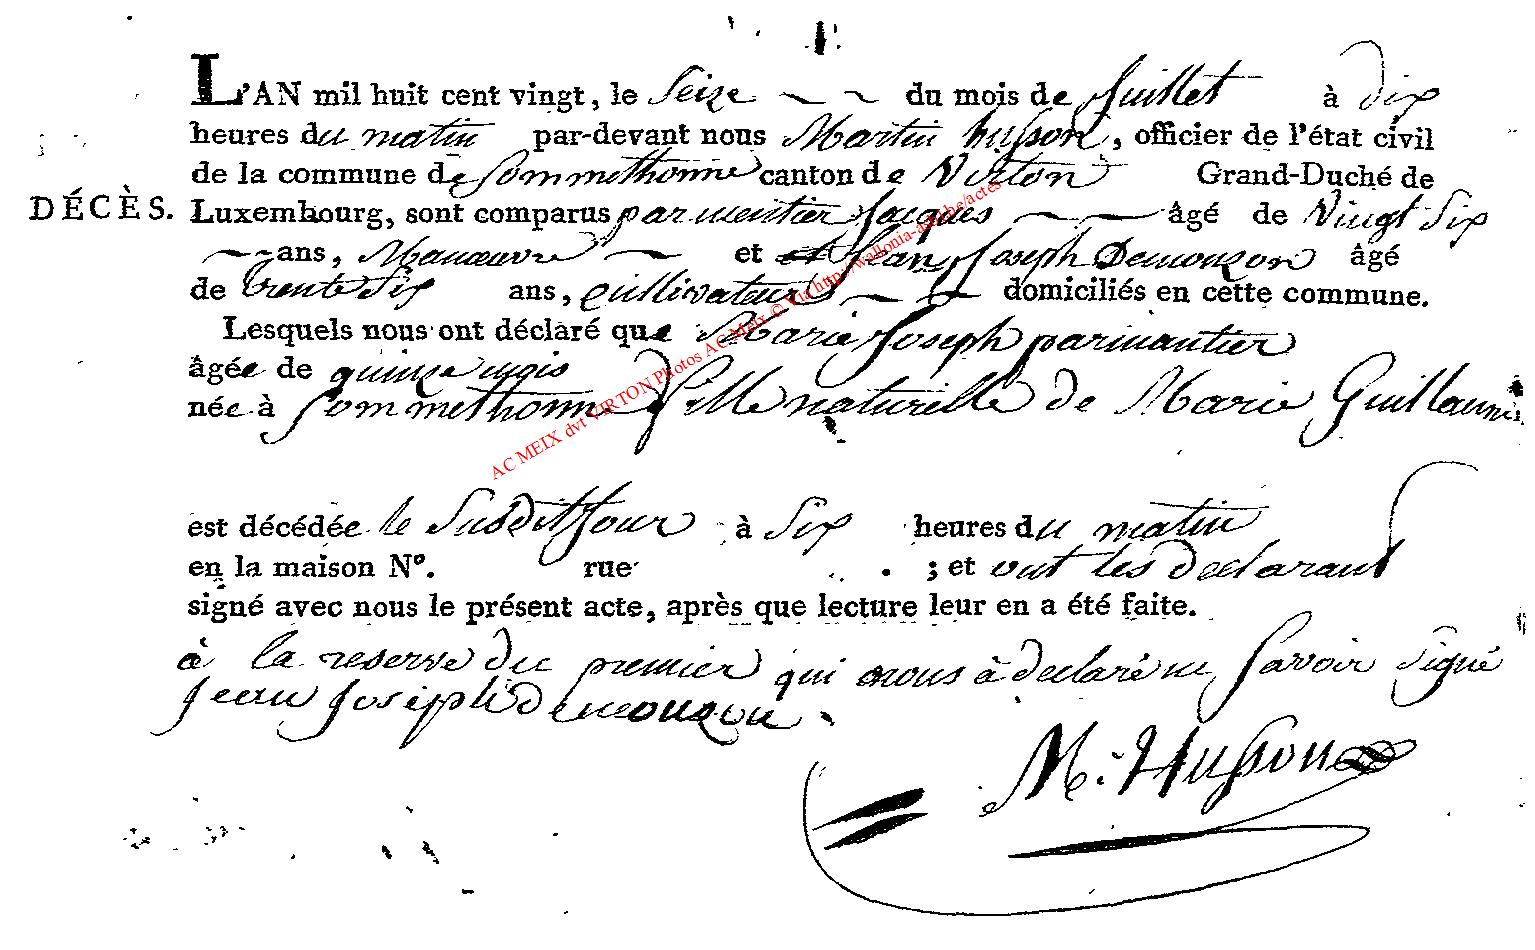 L'AN mil huit cent vingt, le Seize du mois de Juillet à dix
heures du matin par-devant nous Martin husson, officier de l'état civil
de la commune de Sommethonne canton de Virton Grand-Duché de
DÉCÈS. Luxembourg, sont comparus parmentier Jacques âgé de Vingt Six
ans, Manœuvre et Jean Joseph Demonzon âgé
de trente Six ans, cultivateurs domiciliés en cette commune.
Lesquels nous ont déclaré que Marie Joseph parmantier
âgée de quinze mois
née à Sommethonne fille naturelle de Marie Guillaume
est décédée le Susdit Jour à Six heures du matin
en la maison N°. rue ; et ont les declarant
signé avec nous le présent acte, après que lecture leur en a été faite.
à la reserve du premier qui nous à declaré ne Savoir Signé
Jean Joseph Demonzon
M. Husson
AC MEIX dvt VIRTON Photos AC Meix © Via http://wallonia-asbl.be/actes